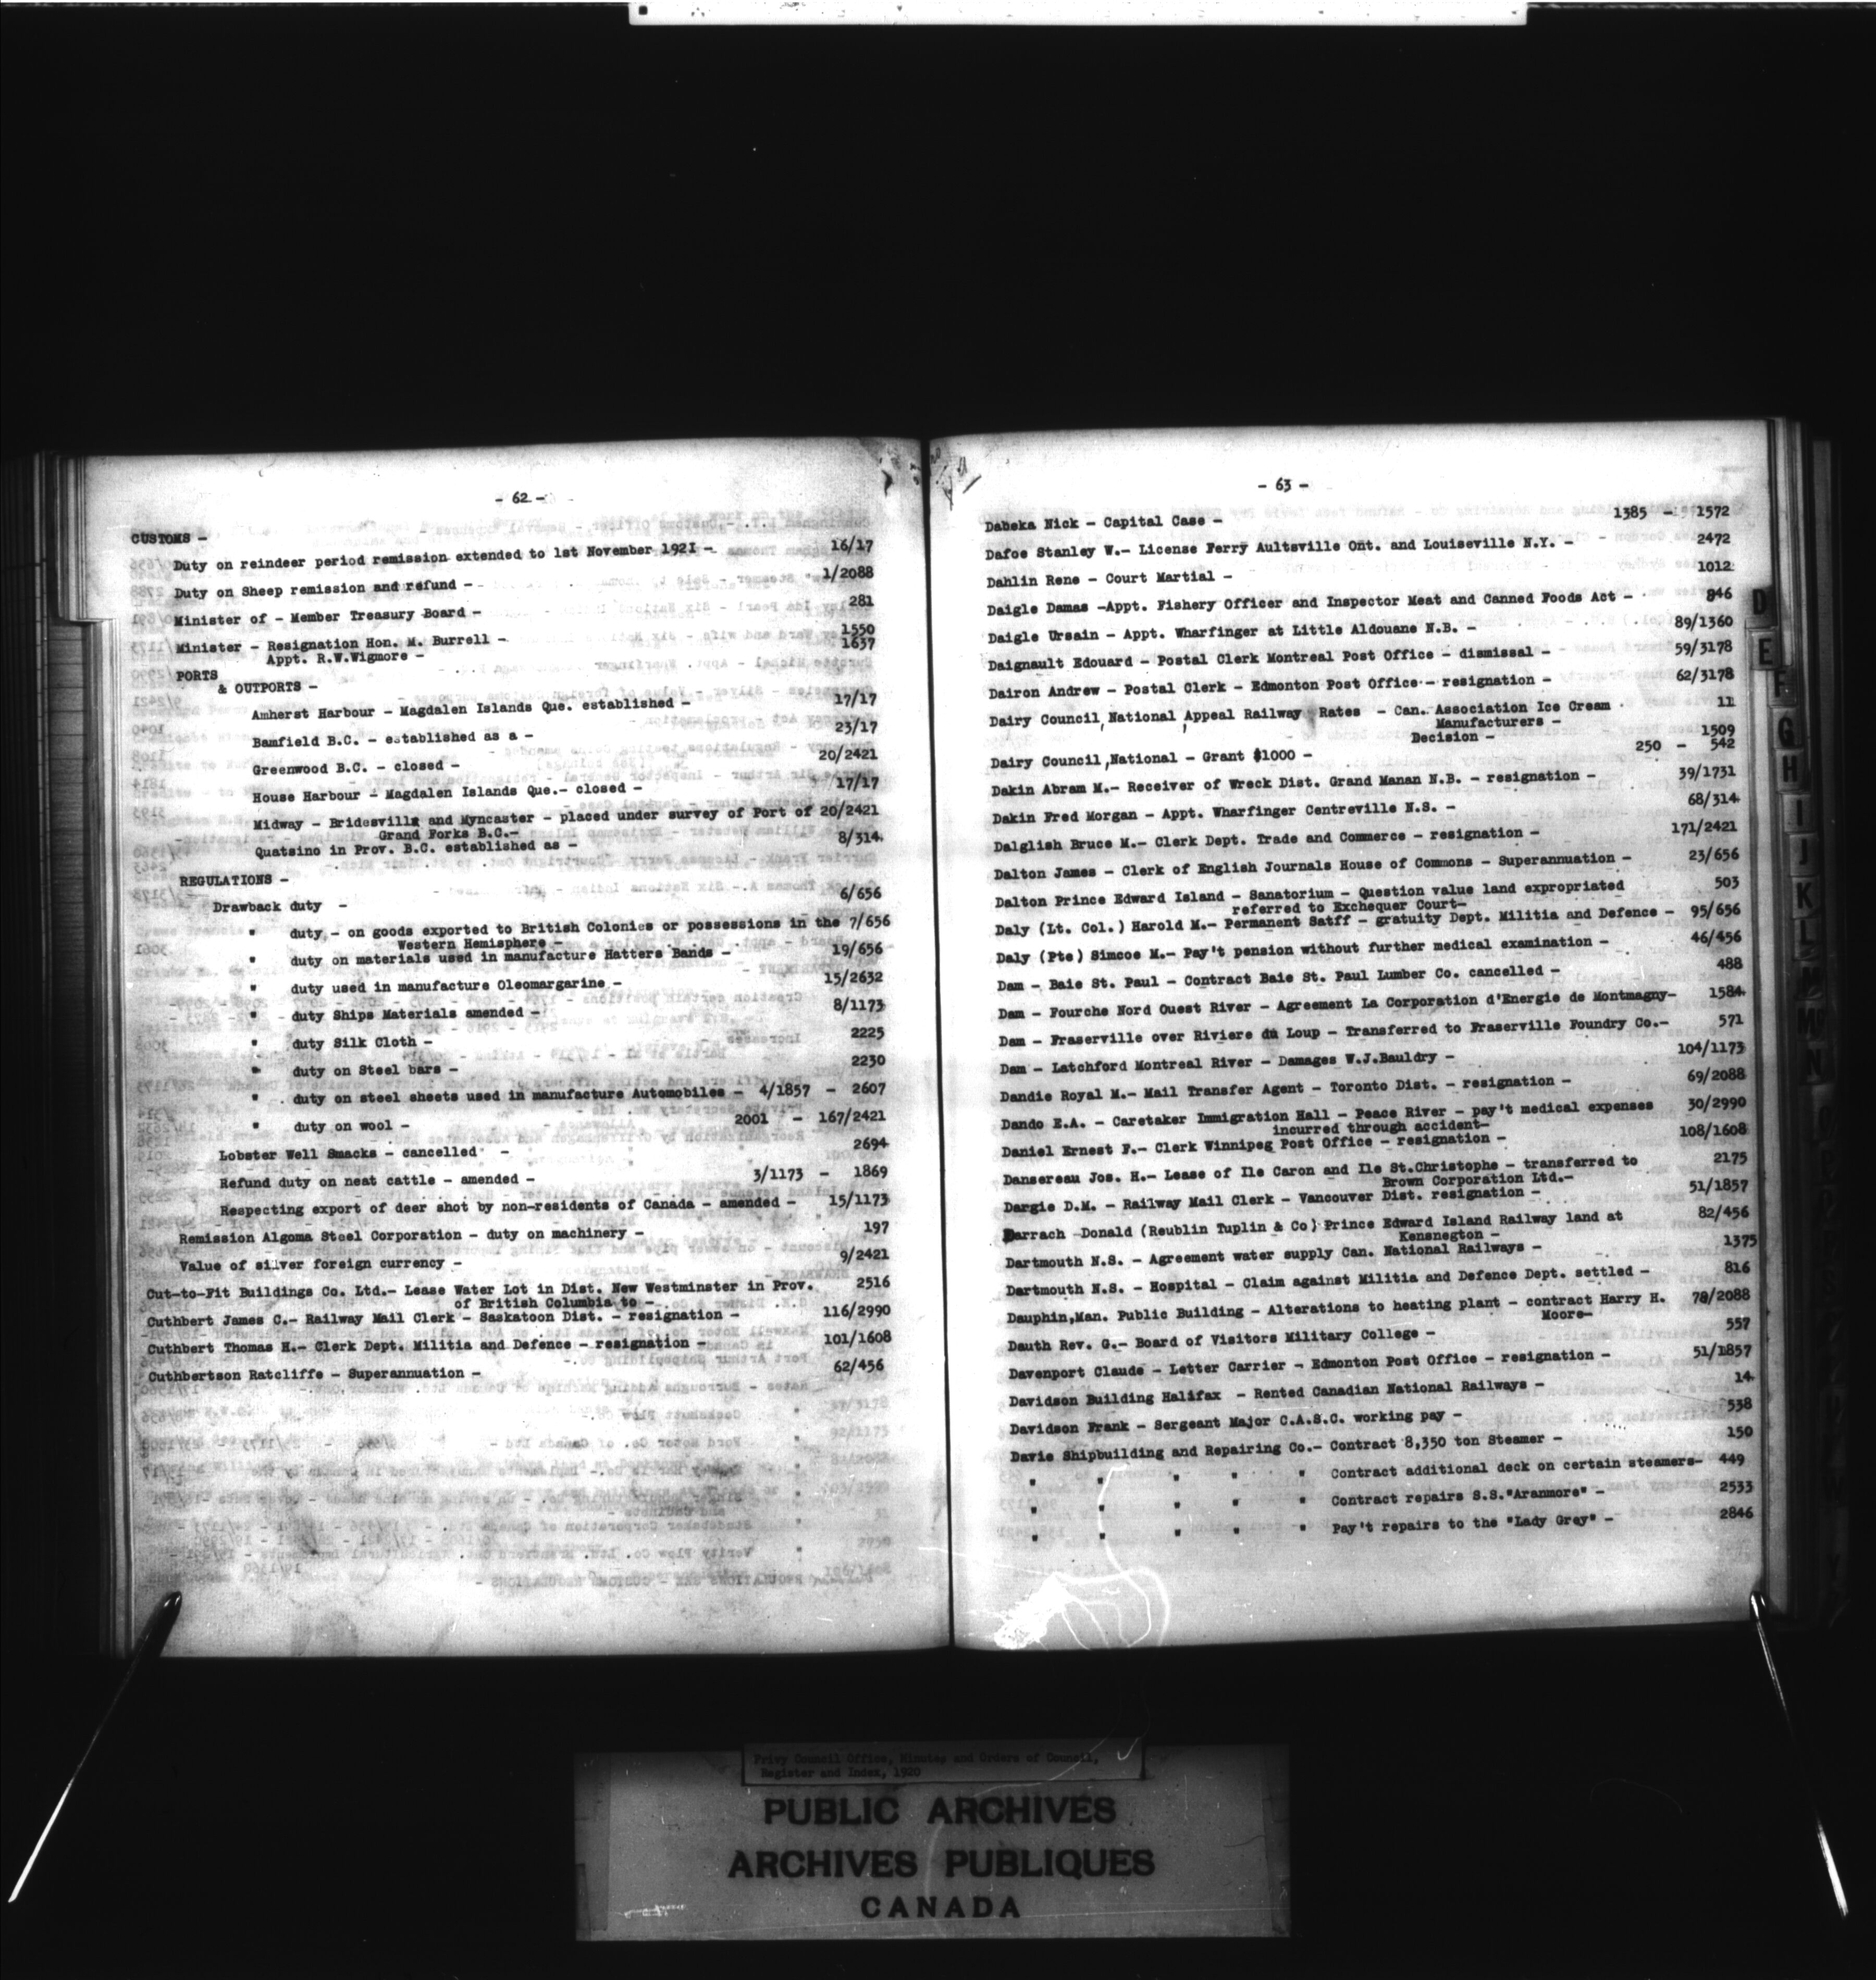 - 62 -
CUSTOMS -
Duty on reindeer period remission extended to 1st November 1921 - 16/17
Duty on Sheep remission and refund - 1/2088
Minister of - Member Treasury Board - 281
Minister - Resignation Hon. M. Burrell - 1550
Appt. R.W.Wigmore - 1637
PORTS
& OUTPORTS -
Amherst Harbour - Magdalen Islands Que. established - 17/17
Bamfield B.C. - established as a - 23/17
Greenwood B.C. - closed - 20/2421
House Harbour - Magdalen Islands Que.- closed - 17/17
Midway - Bridesville and Myncaster - placed under survey of Port of 20/2421
Grand Forks B.C.-
Quatsino in Prov. B.C. established as - 8/314
REGULATIONS -
Drawback duty - 6/656
" duty - on goods exported to British Colonies or possessions in the 7/656
Western Hemisphere -
" duty on materials used in manufacture Hatters Bands - 19/656
" duty used in manufacture Oleomargarine - 15/2632
" duty Ships Materials amended - 8/1173
" duty Silk Cloth - 2225
" duty on Steel bars - 2230
" duty on steel sheets used in manufacture Automobiles - 4/1857 - 2607
" duty on wool - 2001 - 167/2421
Lobster Well Smacks - cancelled - 2694
Refund duty on neat cattle - amended - 3/1173 - 1869
Respecting export of deer shot by non-residents of Canada - amended - 15/1173
Remission Algoma Steel Corporation - duty on machinery - 197
Value of silver foreign currency - 9/2421
Cut-to-Fit Buildings Co. Ltd.- Lease Water Lot in Dist. New Westminster in Prov. 2516
of British Columbia to -
Cuthbert James C.- Railway Mail Clerk - Saskatoon Dist. - resignation - 116/2990
Cuthbert Thomas H.- Clerk Dept. Militia and Defence - resignation - 101/1608
Cuthbertson Ratcliffe - Superannuation - 62/456
- 63 -
Dabeka Nick - Capital Case - 1385 - 1572
Dafoe Stanley W.- License Ferry Aultsville Ont. and Louiseville N.Y. - 2472
Dahlin Rene - Court Martial - 1012
Daigle Damas -Appt. Fishery Officer and Inspector Meat and Canned Foods Act - 846
Daigle Ursain - Appt. Wharfinger at Little Aldouane N.B. - 89/1360
Daignault Edouard - Postal Clerk Montreal Post Office - dismissal - 59/3178
Dairon Andrew - Postal Clerk - Edmonton Post Office - resignation - 62/3178
Dairy Council, National, Appeal Railway Rates - Can. Association Ice Cream 11
Manufacturers -
Decision - 1509
Dairy Council, National - Grant $1000 - 250 - 542
Dakin Abram M.- Receiver of Wreck Dist. Grand Manan N.B. - resignation - 39/1731
Dakin Fred Morgan - Appt. Wharfinger Centreville N.S. - 68/314
Dalglish Bruce M.- Clerk Dept. Trade and Commerce - resignation - 171/2421
Dalton James - Clerk of English Journals House of Commons - Superannuation - 23/656
Dalton Prince Edward Island - Sanatorium - Question value land expropriated 503
referred to Exchequer Court-
Daly (Lt. Col.) Harold M.- Permanent Satff - gratuity Dept. Militia and Defence - 95/656
Daly (Pte) Simcoe M.- Pay't pension without further medical examination - 46/456
Dam - Baie St. Paul - Contract Baie St. Paul Lumber Co. cancelled - 488
Dam - Fourche Nord Ouest River - Agreement La Corporation d'Energie de Montmagny- 1584
Dam - Fraserville over Riviere du Loup - Transferred to Fraserville Foundry Co.- 571
Dam - Latchford Montreal River - Damages W.J.Bauldry - 104/1173
Dandie Royal M.- Mail Transfer Agent - Toronto Dist. - resignation - 69/2088
Dando E.A. - Caretaker Immigration Hall - Peace River - pay't medical expenses 30/2990
incurred through accident-
Daniel Ernest F.- Clerk Winnipeg Post Office - resignation - 108/1608
Dansereau Jos. H.- Lease of Ile Caron and Ile St.Christophe - transferred to 2175
Brown Corporation Ltd.-
Dargie D.M. - Railway Mail Clerk - Vancouver Dist. resignation - 51/1857
Darrach Donald (Reublin Tuplin & Co) Prince Edward Island Railway land at 82/456
Kensnegton -
Dartmouth N.S. - Agreement water supply Can. National Railways - 1375
Dartmouth N.S. - Hospital - Claim against Militia and Defence Dept. settled - 816
Dauphin,Man. Public Building - Alterations to heating plant - contract Harry H. 78/2088
Moore-
Dauth Rev. G.- Board of Visitors Military College - 557
Davenport Claude - Letter Carrier - Edmonton Post Office - resignation - 51/1857
Davidson Building Halifax - Rented Canadian National Railways - 14
Davidson Frank - Sergeant Major C.A.S.C. working pay - 538
Davie Shipbuilding and Repairing Co.- Contract 8,350 ton Steamer - 150
" " " " " Contract additional deck on certain steamers- 449
" " " " " Contract repairs S.S."Aranmore" - 2533
" " " " " Pay't repairs to the "Lady Grey" - 2846
D
E
F
G
H
I
J
K
L
M
N
Privy Council Office, Minutes and Orders of Council,
Register and Index, 1920
PUBLIC ARCHIVES
ARCHIVES PUBLIQUES
CANADA